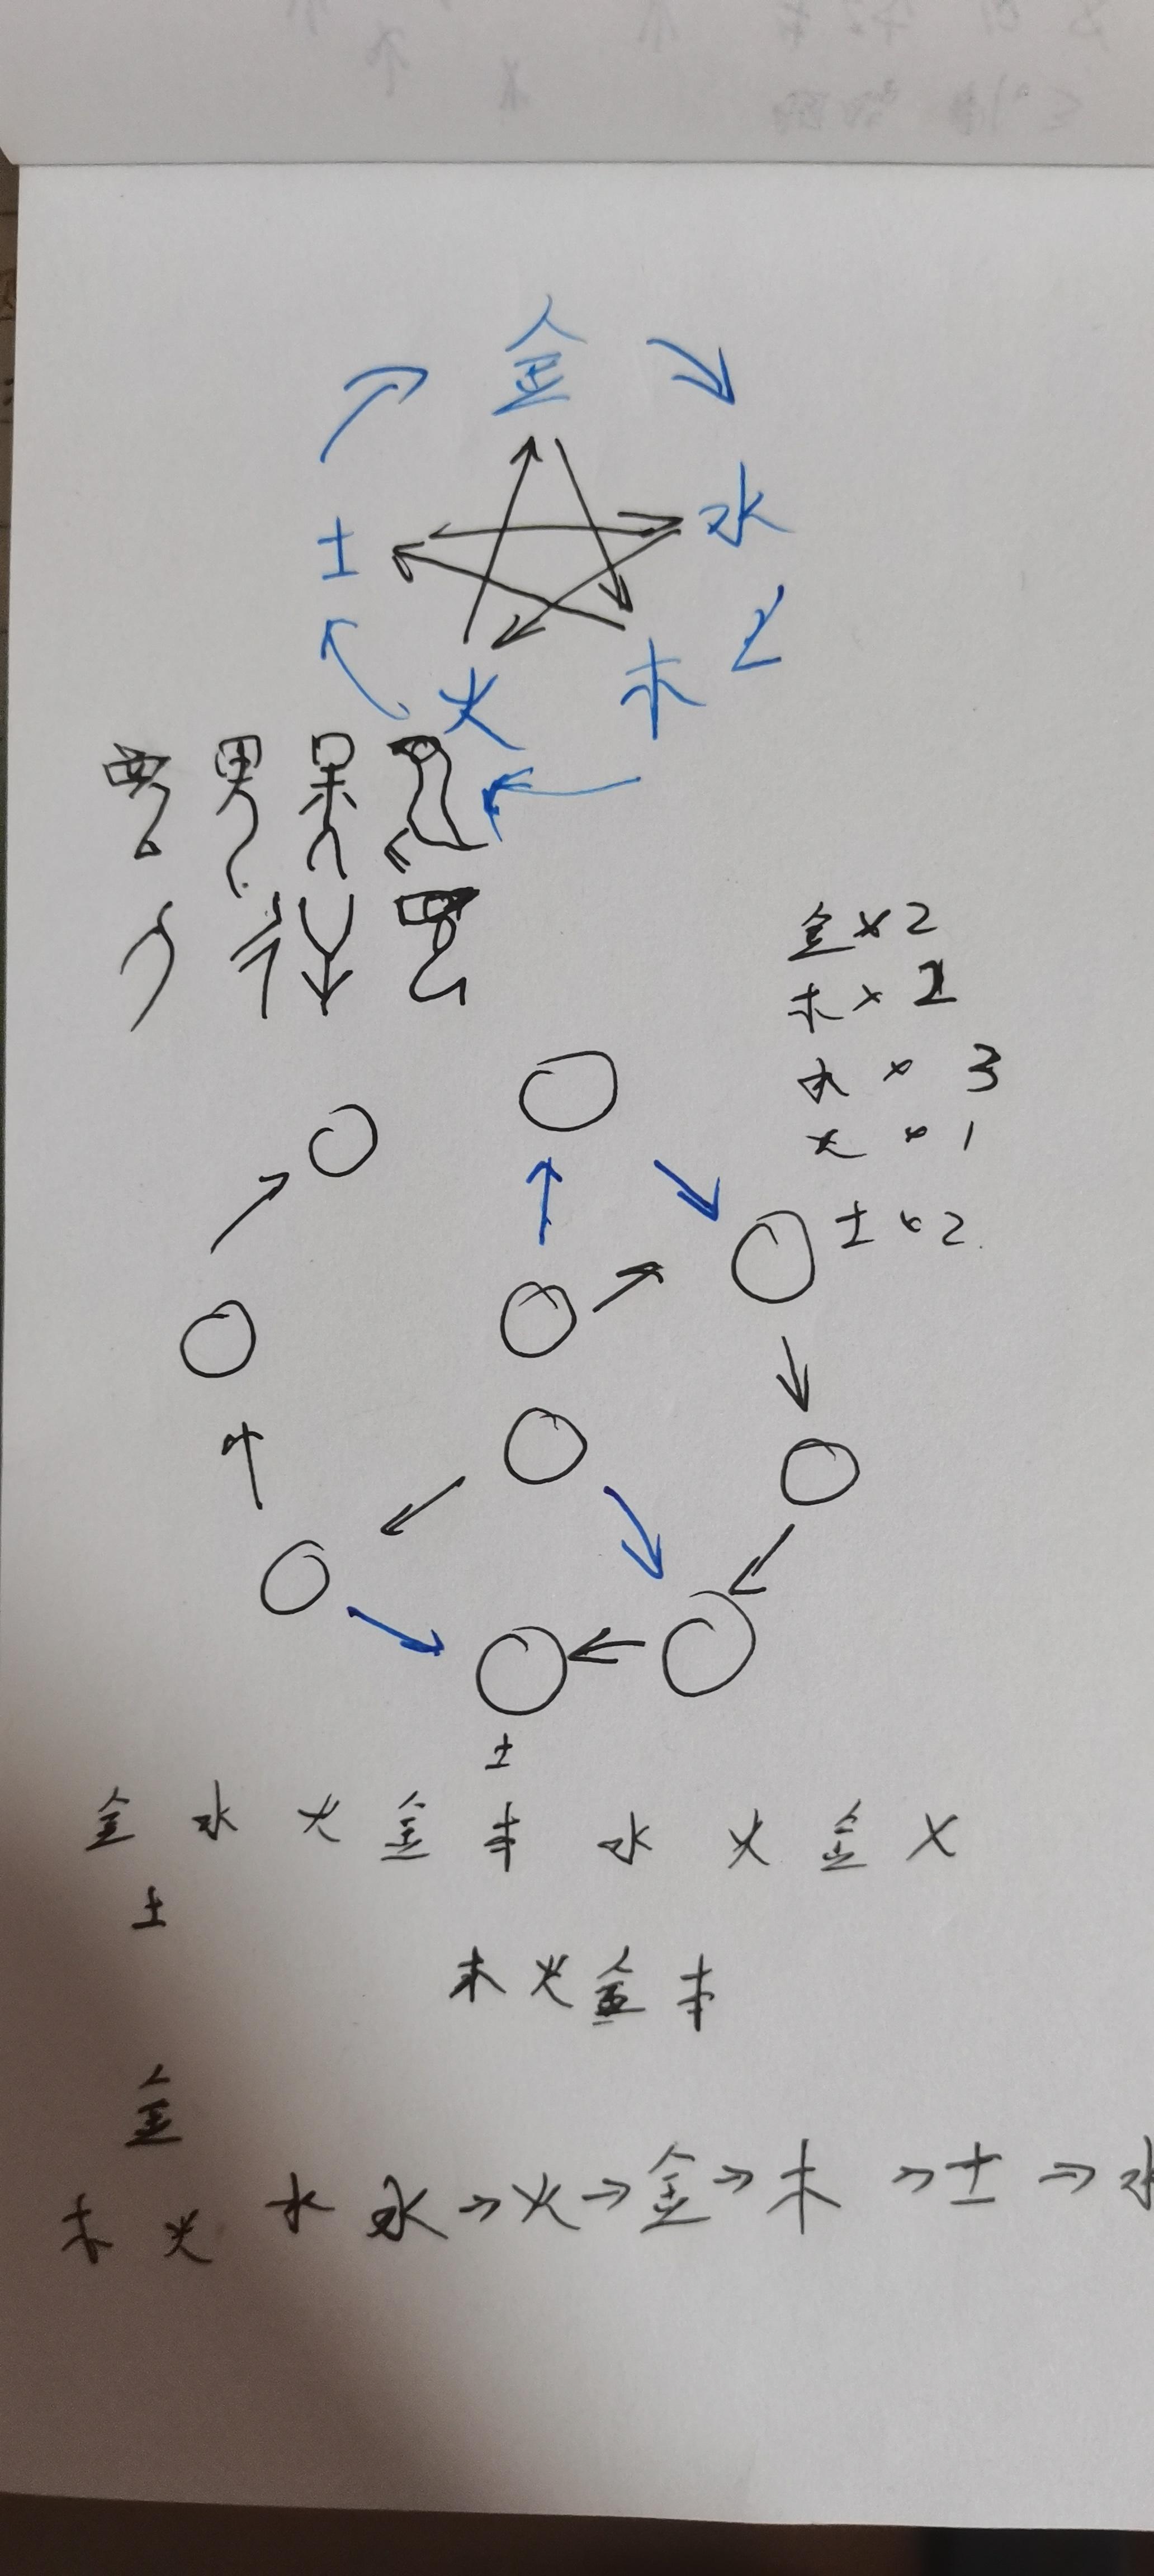 金
土 水
火 木
金×2
木×2
水×3
火×1
土×2
土
金 水 火 金 木 水 火 金 ×
土
木 火 金 木
金
木 火 水 水→火→金→木→土→水